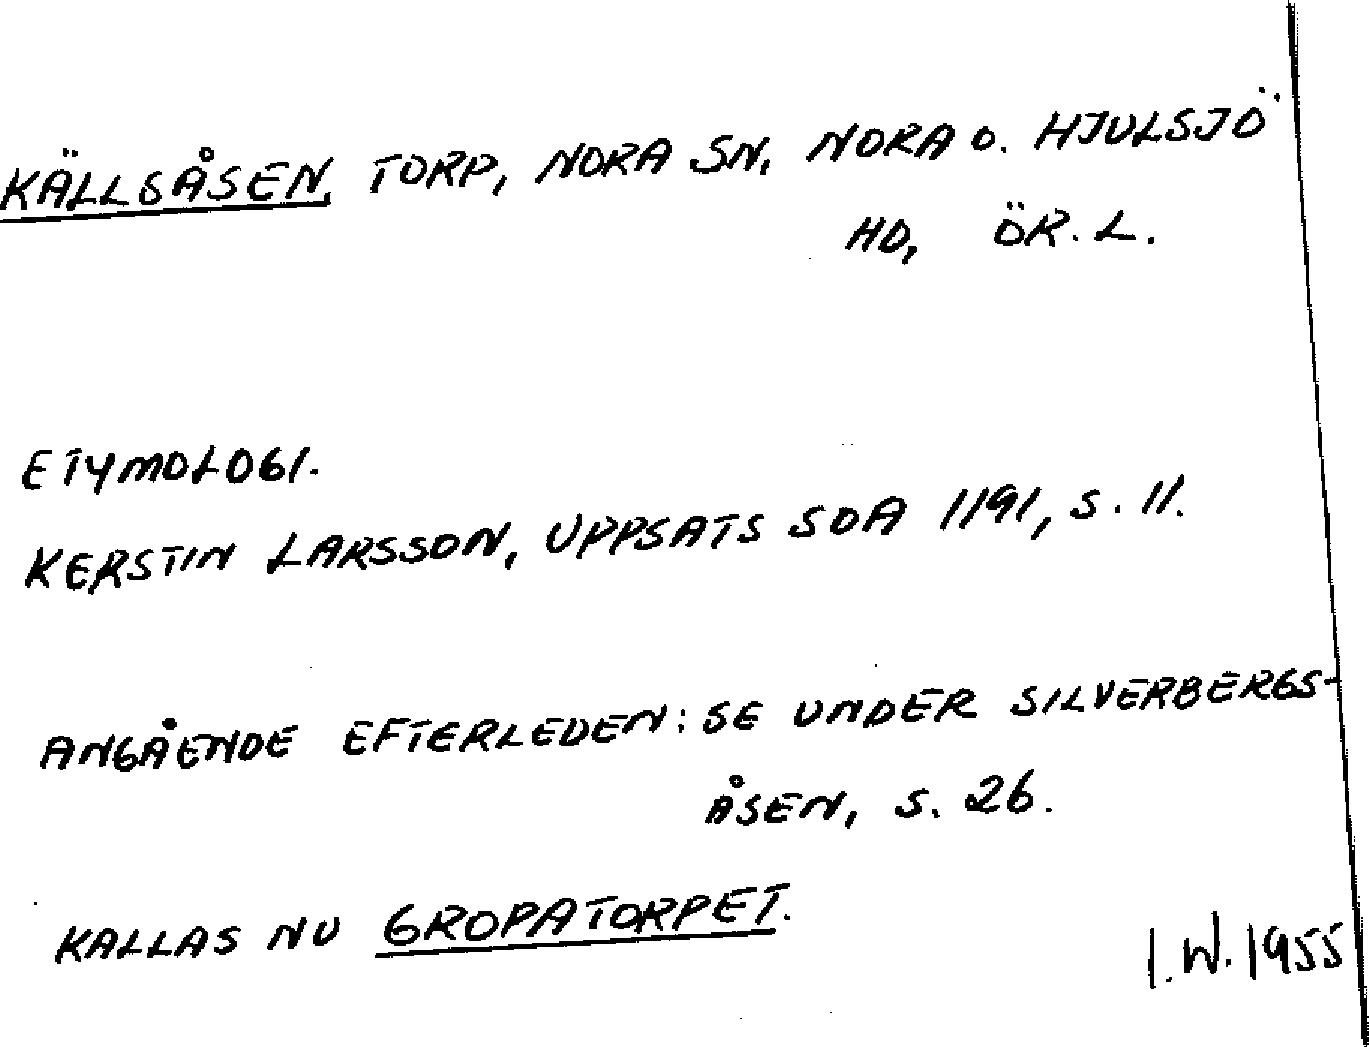 KÄLLSÅSEN, TORP, NORA SN, NORA O. HJULSJÖ
HD, ÖR. L.
ETYMOLOGI.
KERSTIN LARSSON, UPPSATS SOA 1191, S. 11.
ANGÅENDE EFTERLEDEN: SE UNDER SILVERBERGS-
ÅSEN, S. 26.
KALLAS NU GROPATORPET.
I.W. 1955